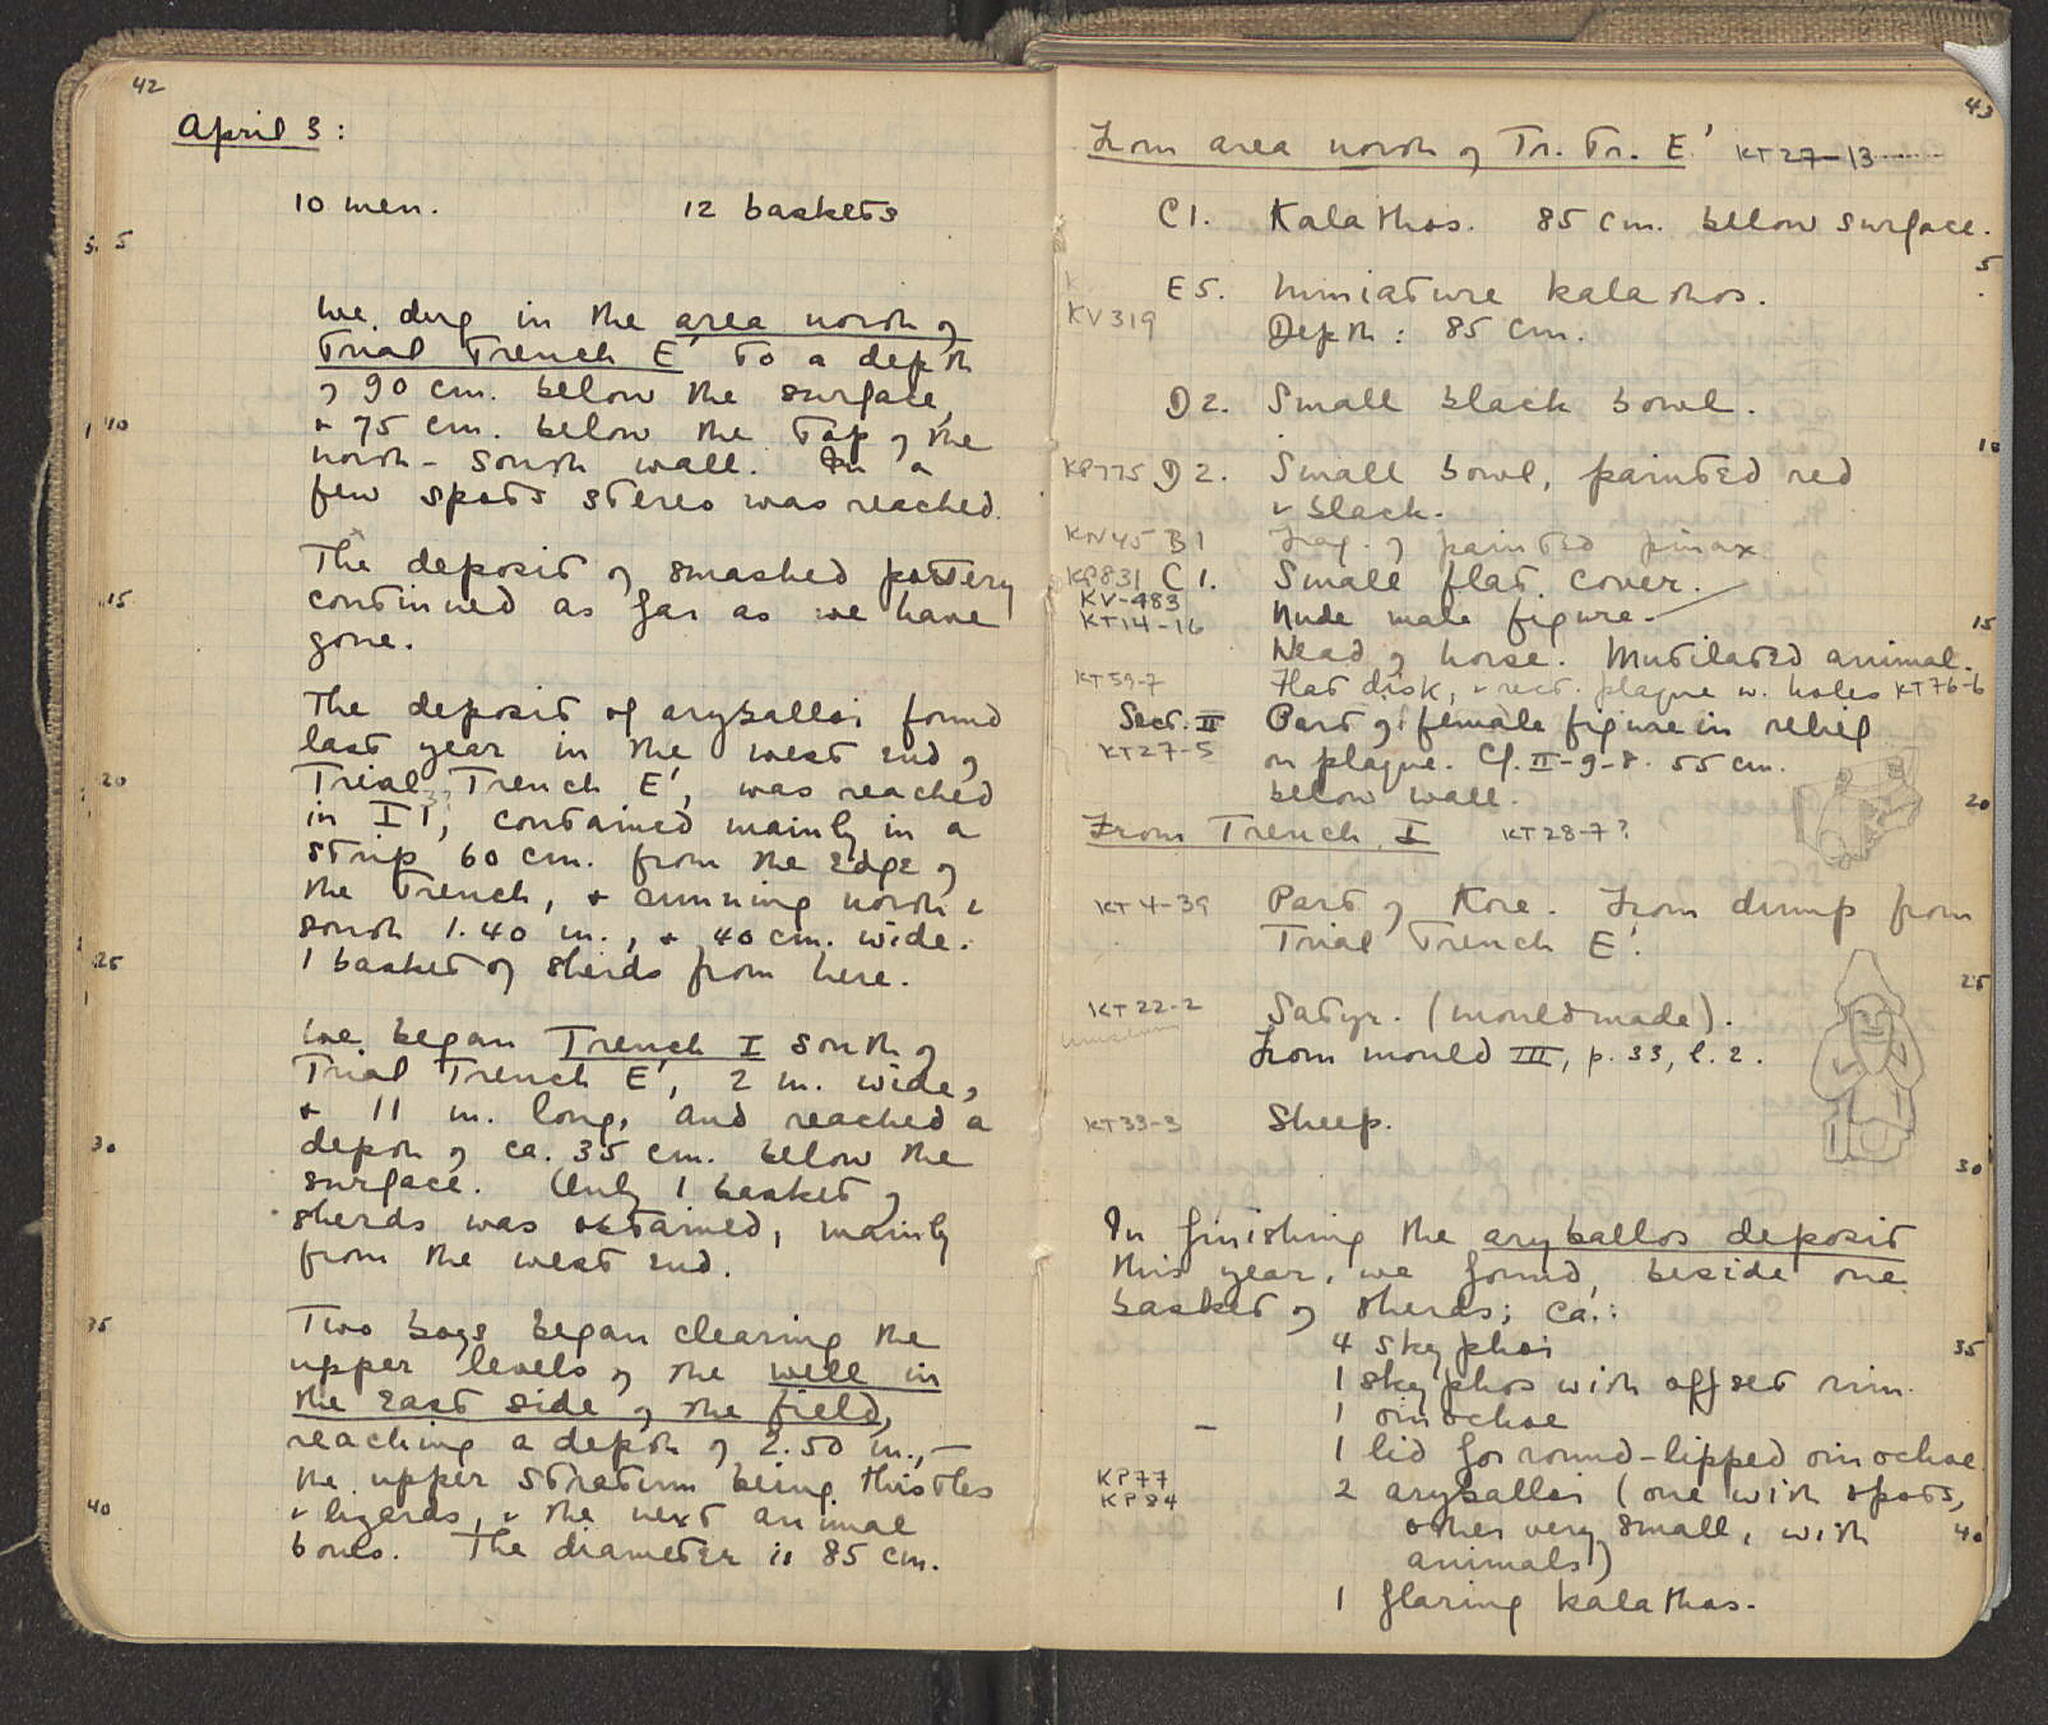 42
April 3:
10 men. 12 baskets
5
We dug in the area north of
Trial Trench E' to a depth
of 90 cm. below the surface,
10
+ 75 cm. below the top of the
north-south wall. In a
few spots stereo was reached.
The deposit of smashed pottery
15
continued as far as we have
gone.
The deposit of aryballoi found
last year in the west end of
20
Trial Trench E', was reached
in I 1, contained mainly in a
strip 60 cm. from the edge of
the trench, + running north &
south 1.40 m., + 40 cm. wide.
25
1 basket of sherds from here.
We began Trench I south of
Trial Trench E', 2 m. wide,
+ 11 m. long, and reached a
30
depth of ca. 35 cm. below the
surface. Only 1 basket of
sherds was obtained, mainly
from the west end.
35
Two boys began clearing the
upper levels of the well in
the east side of the field,
reaching a depth of 2.50 m., —
the upper stratum being thistles
40
& lizards, & the next animal
bones. The diameter is 85 cm.
43
From area north of Tr. Tr. E' KT27-13
C1. Kalathos. 85 cm. below surface.
5
E5. Miniature kalathos.
KV319
Depth: 85 cm.
D2. Small black bowl.
10
KP775 D2. Small bowl, painted red
& black.
KN45 B1 Frag. of painted pinax
KP831 C1. Small flat cover.
KV-483
KT14-16 Nude male figure. 15
Head of horse. Mutilated animal.
KT59-7 Flat disk, & rect. plaque w. holes KT76-6
Sect. II Part of female figure in relief
KT27-5 on plaque. Cf. II-9-8. 55 cm.
below wall. 20
From Trench I KT28-7?
KT4-39 Part of Kore. From dump from
Trial Trench E'.
25
KT22-2 Satyr. (mouldmade).
From mould III, p. 33, l. 2.
KT33-3 Sheep.
30
In finishing the aryballos deposit
this year, we found, beside one
basket of sherds; ca.:
4 skyphoi 35
1 skyphos with offset rim.
– 1 oinochoe
1 lid for round-lipped oinochoe
KP77
KP84
2 aryballoi (one with spots,
other very small, with 40
animals)
1 flaring kalathos.